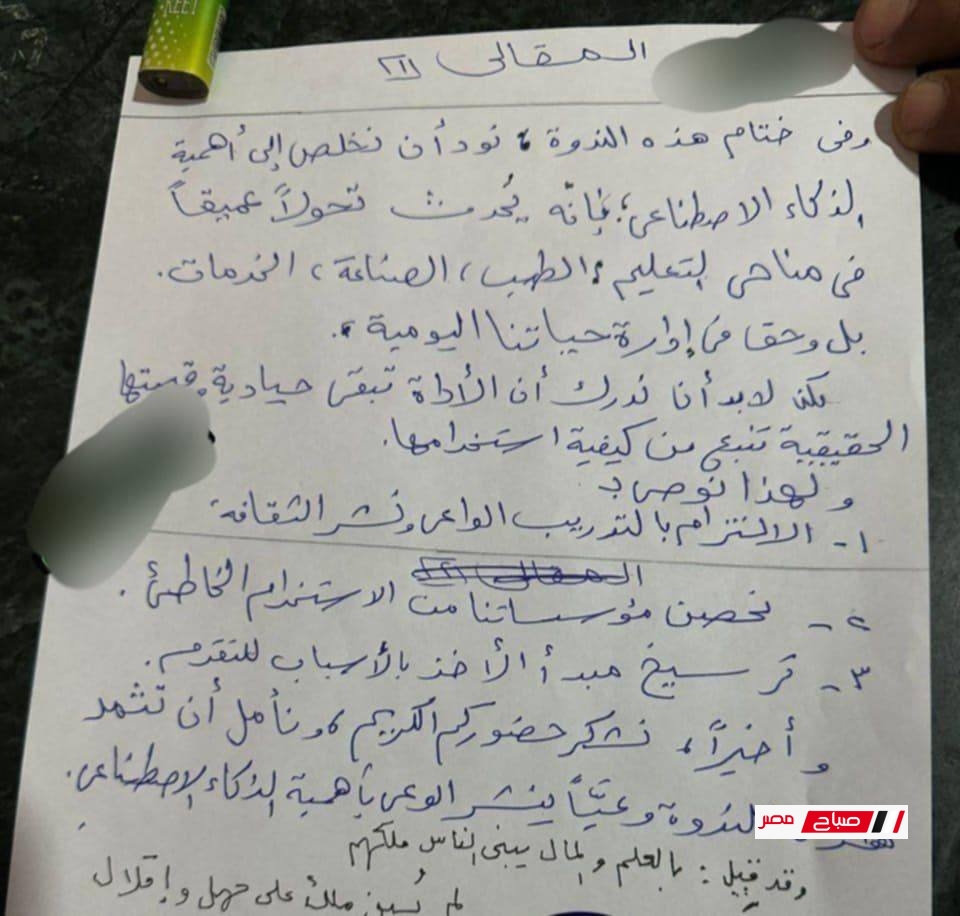 KEET
المقالى (٢١)
وفى ختام هذه الندوة، نود أن نخلص إلى أهمية
الذكاء الاصطناعى؛ فإنّه يُحدث تحولاً عميقاً
فى مناحى التعليم، الطب، الصناعة، الخدمات.
بل وحتى فى إدارة حياتنا اليومية،
لكن لابد أن ندرك أن الأداة تبقى حيادية، قيمتها
الحقيقية تنبع من كيفية استخدامها.
ولهذا نوصى بـ
١- الالتزام بالتدريب الواعى ونشر الثقافة
المقالى
٢- تحصين مؤسساتنا من الاستخدام الخاطئ.
٣- ترسيخ مبدأ الأخذ بالأسباب للتقدم.
وأخيراً، نشكر حضوركم الكريم، ونأمل أن تثمر
الندوة وعيّاً ينشر الوعى بأهمية الذكاء الاصطناعى.
صباح مصر
وقد قيل: بالعلم والمال يبنى الناس ملكهم
لم يُبن ملك على جهل وإقلال